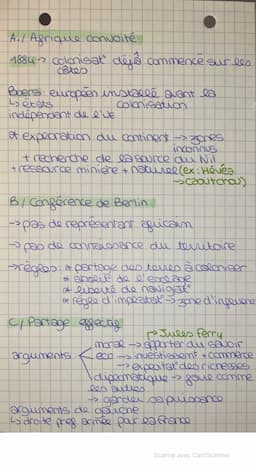 A./ Afrique convoité
1884 -> colonisat° déjà commencé sur les
côtes
Boers : européen installé avant la
colonisation
↳ états
indépendant de l'UE
* exploration du continent -> zones
inconnus
+ recherche de la source du Nil
+ ressource minière + naturel (ex : Hévéa
-> caoutchou)
B/ Conférence de Berlin
-> pas de représentant africain
-> pas de connaissance du territoire
-> règles : * partage des terres à coloniser
* abolit° de l'esclavage
* liberté de navigat°
* règle d'implantat° -> zone d'influence
C/ Partage effectif
-> Jules Ferry
moral -> apporter du savoir
arguments eco -> investissement + commerce
-> exploitat° des richesses
diplomatique -> faire comme
les autres
-> garder sa puissance
arguments de gauche
↳ droite armée par la France
Scanné avec CamScanner